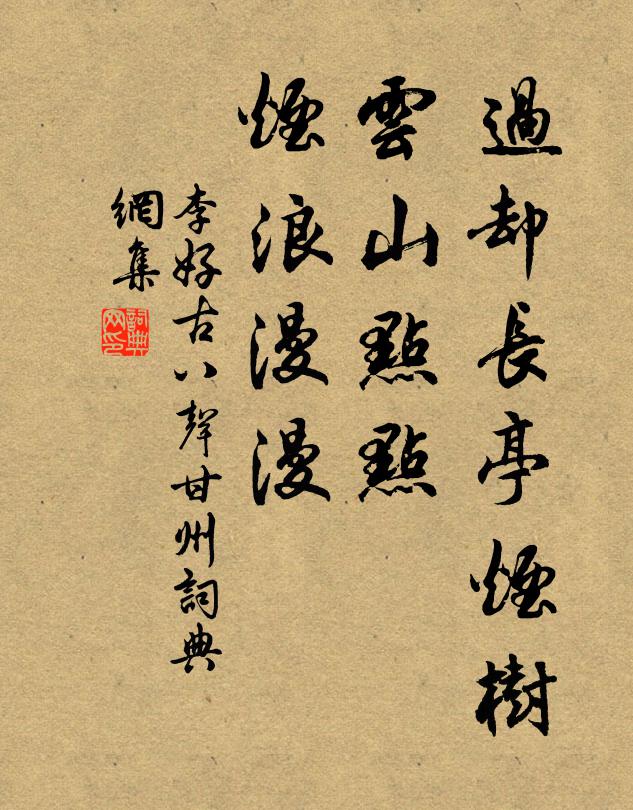 過却長亭煙樹
雲山點點
煙浪漫漫
李好古八聲甘州詞典
網集
詞典
网印